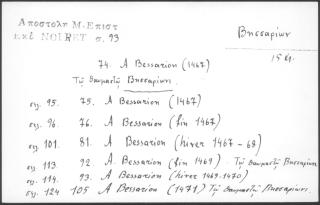 Αποστόλη Μ. Επιστ
εκδ NOIRET σ. 93
Βησσαρίων
15 αι.
74. A Bessarion (1467)
Τῷ θαυμαστῷ Βησσαρίωνι.
σελ. 95. 75. A Bessarion (1467)
σελ. 96. 76. A Bessarion (fin 1467)
σελ. 101 81. A Bessarion (hiver 1467-68)
σελ. 113 92. A Bessarion (fin 1469). Τῷ θαυμαστῷ Βησσαρίωνι
σελ. 114. 93. A Bessarion (hiver 1469-1470)
σελ. 124 105 A Bessarion (1471) Τῷ θαυμαστῷ Βησσαρίωνι.